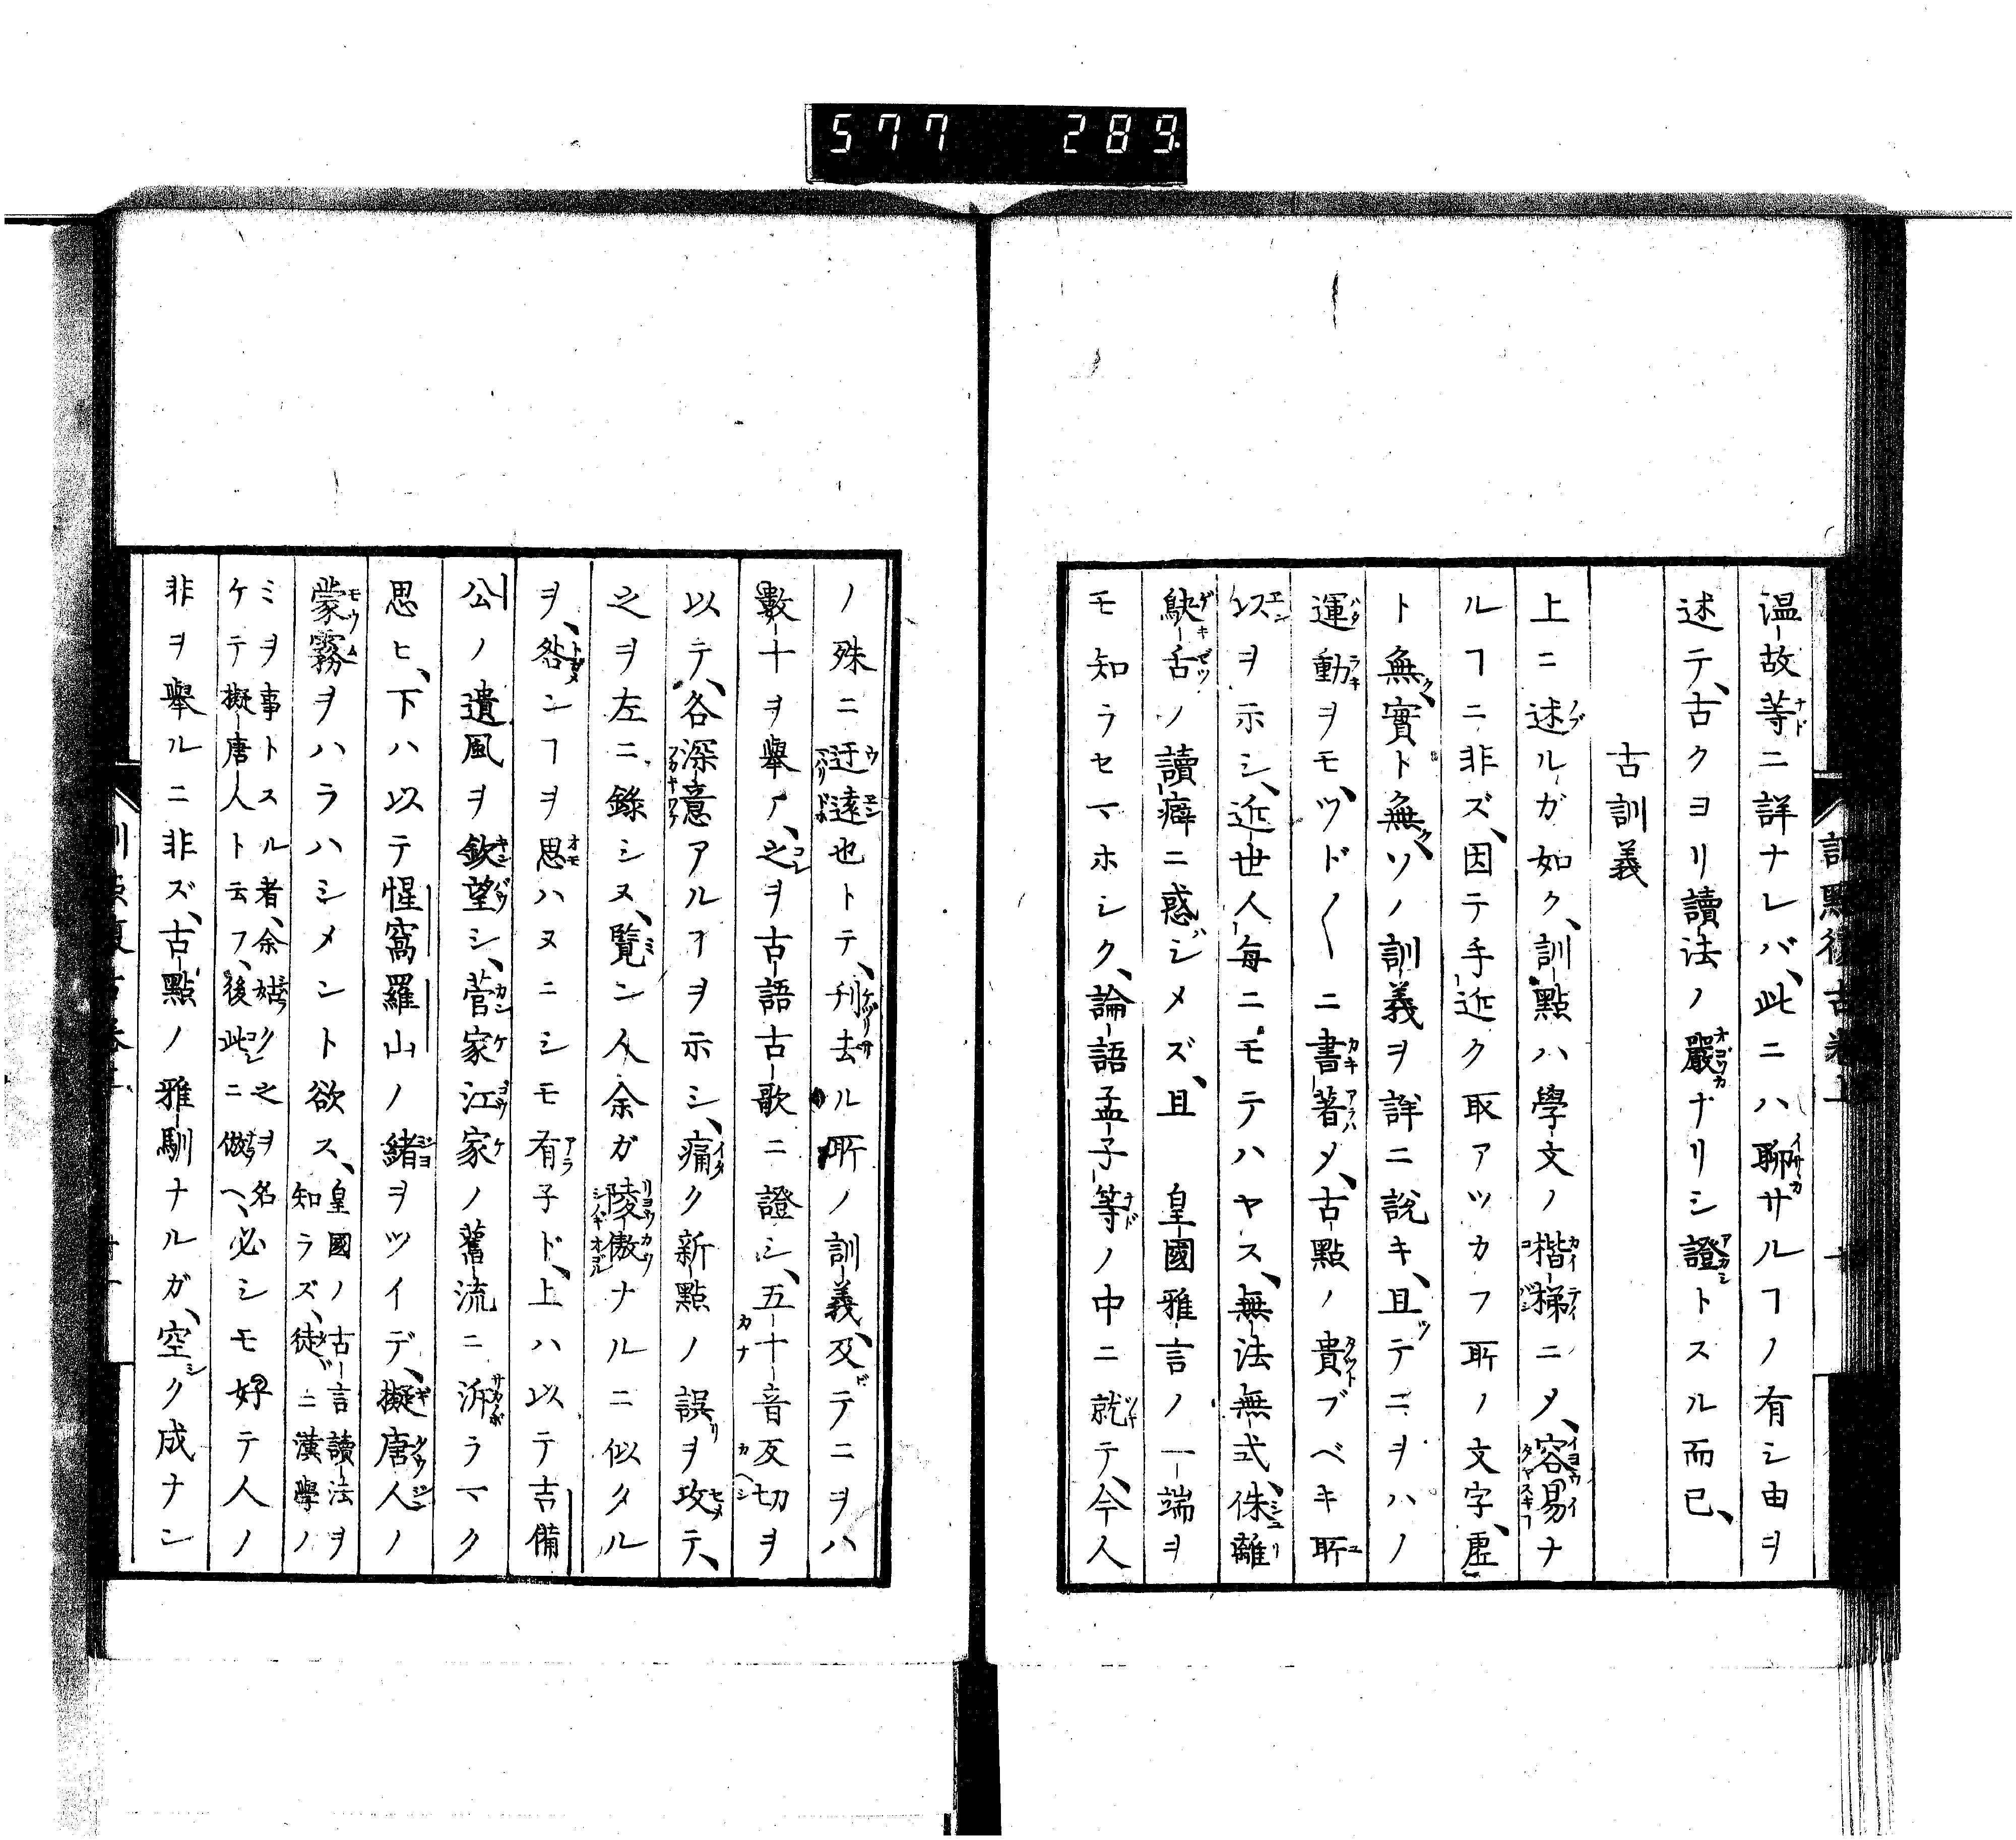 577 289
訓點復古卷上
温故等ニ詳ナレバ、此ニハ聊サルヿノ有シ由ヲ
述テ、古クヨリ讀法ノ嚴ナリシ證トスル而已、
古訓義
上ニ述ルガ如ク、訓點ハ學文ノ楷梯ニメ、容易ナ
ルヿニ非ズ、因テ手近ク取アツカフ所ノ文字、虛
ト無ク、實ト無ク、ソノ訓義ヲ詳ニ説キ、且ツテニヲハノ
運動ヲモ、ツド〱ニ書著メ、古點ノ貴ブベキ所
ヲ示シ、近世人每ニモテハヤス、無法無式、侏離
鴃舌ノ讀癖ニ惑ジメズ、且 皇國雅言ノ一端ヲ
モ知ラセマホシク、論語孟子等ノ中ニ就テ、今人
ノ殊ニ迂遠也トテ、刋去ル所ノ訓義、及ビテニヲハ
數十ヲ舉ゲ、之ヲ古語古歌ニ證シ、五十音反切ヲ
以テ、各深意アルヿヲ示シ、痛ク新點ノ誤リヲ攻テ、
之ヲ左ニ錄シヌ、覽ン人余ガ陵傲ナルニ似タル
ヲ、咎ンヿヲ思ハヌニシモ有子ド、上ハ以テ吉備
公ノ遺風ヲ欽望シ、菅家江家ノ舊流ニ泝ラマク
思ヒ、下ハ以テ惺窩羅山ノ緒ヲツイデ、擬唐人ノ
蒙霧ヲハラハシメント欲ス、皇國ノ古言讀法ヲ
知ラズ、徒ニ漢學ノ
ミヲ事トスル者、余姑ク之ヲ名
ケテ擬唐人ト云フ、後此ニ倣ヘ、必シモ好テ人ノ
非ヲ舉ルニ非ズ、古點ノ雅馴ナルガ、空シク成ナン